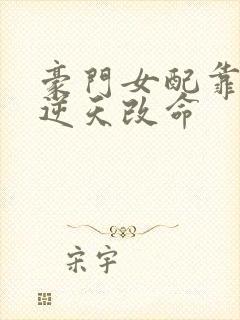 豪門女配靠
逆天改命
宋宇